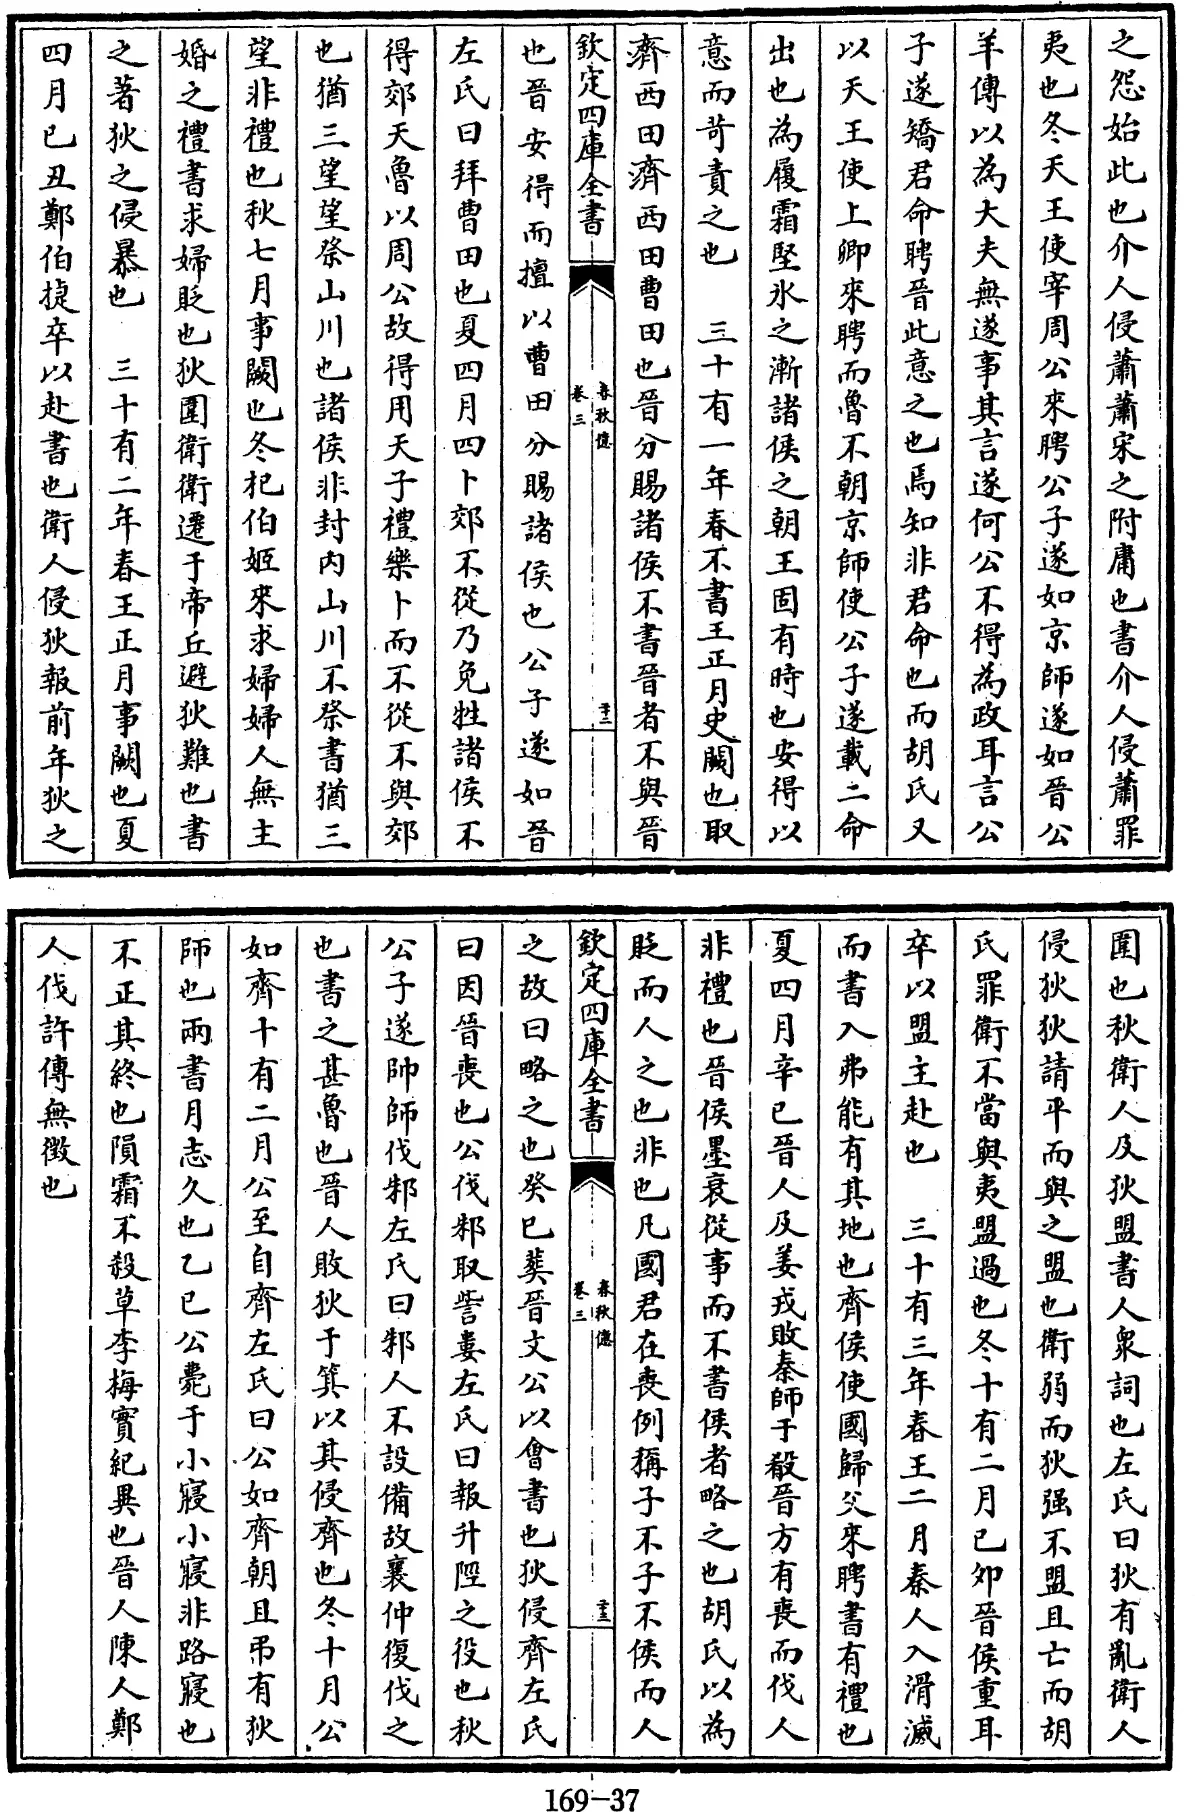 之怨始此也介人侵蕭蕭宋之附庸也書介人侵蕭罪
夷也冬天王使宰周公來聘公子遂如京師遂如晉公
羊傳以為大夫無遂事其言遂何公不得為政耳言公
子遂矯君命聘晉此意之也焉知非君命也而胡氏又
以天王使上卿來聘而魯不朝京師使公子遂載二命
出也為履霜堅氷之漸諸侯之朝王固有時也安得以
意而苛責之也　三十有一年春不書王正月史闕也取
濟西田濟西田曹田也晉分賜諸侯不書晉者不與晉
欽定四庫全書
春秋億
卷三
三十二
也晉安得而擅以曹田分賜諸侯也公子遂如晉
左氏曰拜曹田也夏四月四卜郊不從乃免牲諸侯不
得郊天魯以周公故得用天子禮樂卜而不從不與郊
也猶三望望祭山川也諸侯非封内山川不祭書猶三
望非禮也秋七月事闕也冬杞伯姬來求婦婦人無主
婚之禮書求婦貶也狄圍衛衛遷于帝丘避狄難也書
之著狄之侵暴也　三十有二年春王正月事闕也夏
四月已丑鄭伯捷卒以赴書也衛人侵狄報前年狄之
圍也秋衛人及狄盟書人衆詞也左氏曰狄有亂衛人
侵狄狄請平而與之盟也衛弱而狄强不盟且亡而胡
氏罪衛不當與夷盟過也冬十有二月已夘晉侯重耳
卒以盟主赴也　三十有三年春王二月秦人入滑滅
而書入弗能有其地也齊侯使國歸父來聘書有禮也
夏四月辛已晉人及姜戎敗秦師于殽晉方有喪而伐人
非禮也晉侯墨衰從事而不書侯者略之也胡氏以為
貶而人之也非也凡國君在喪例稱子不子不侯而人
欽定四庫全書
春秋億
卷三
三十三
之故曰略之也癸已葬晉文公以會書也狄侵齊左氏
曰因晉喪也公伐邾取訾婁左氏曰報升陘之役也秋
公子遂帥師伐邾左氏曰邾人不設備故襄仲復伐之
也書之甚魯也晉人敗狄于箕以其侵齊也冬十月公
如齊十有二月公至自齊左氏曰公如齊朝且弔有狄
師也兩書月志久也乙已公薨于小寢小寢非路寢也
不正其終也隕霜不殺草李梅實紀異也晉人陳人鄭
人伐許傳無徵也
169-37